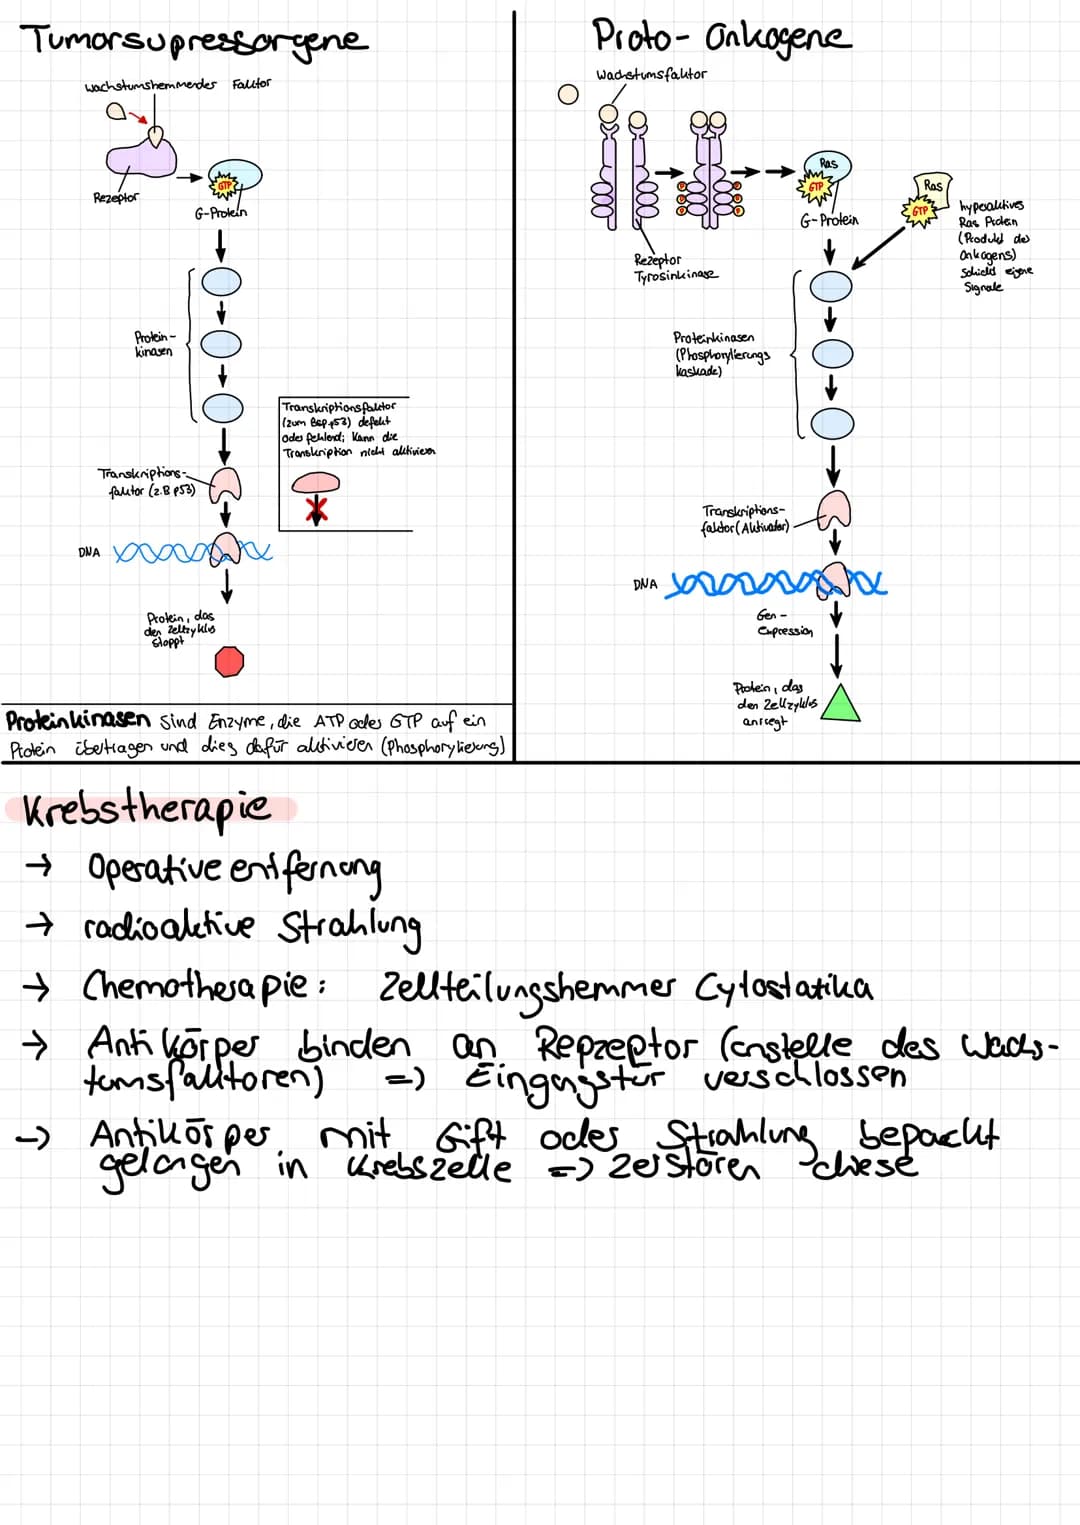 Tumorsupressorgene
wachstumshemmender Faktor
Rezeptor
GTP
G-Protein
Protein-
kinasen
Transkriptionsfaktor
(zum Bsp. p53) defekt
oder fehlend; Kann die
Transkription nicht aktivieren
Transkriptions-
faktor (z.B p53)
DNA
Protein, das
den Zellzyklus
stoppt
Proteinkinasen sind Enzyme, die ATP oder GTP auf ein
Protein übertragen und dies dafür aktivieren (Phosphorylierung)
Proto-Onkogene
Wachstumsfaktor
P
P
P
P
P
P
Rezeptor
Tyrosinkinase
Ras
GTP
G-Protein
Ras
GTP
hyperaktives
Ras Protein
(Produkt des
Onkogens)
schickt eigene
Signale
Proteinkinasen
(Phosphorylierungs
kaskade)
Transkriptions-
faktor (Aktivator)
DNA
Gen-
Expression
Protein, das
den Zellzyklus
anregt
Krebstherapie
→ Operative entfernung
→ radioaktive Strahlung
→ Chemotherapie: Zellteilungshemmer Cytostatika
→ Antikörper binden an Repzeptor (anstelle des Wachs-
tumsfaktoren) => Eingangstür verschlossen
→ Antikörper mit Gift oder Strahlung bepackt
gelangen in Krebszelle => zerstören diese